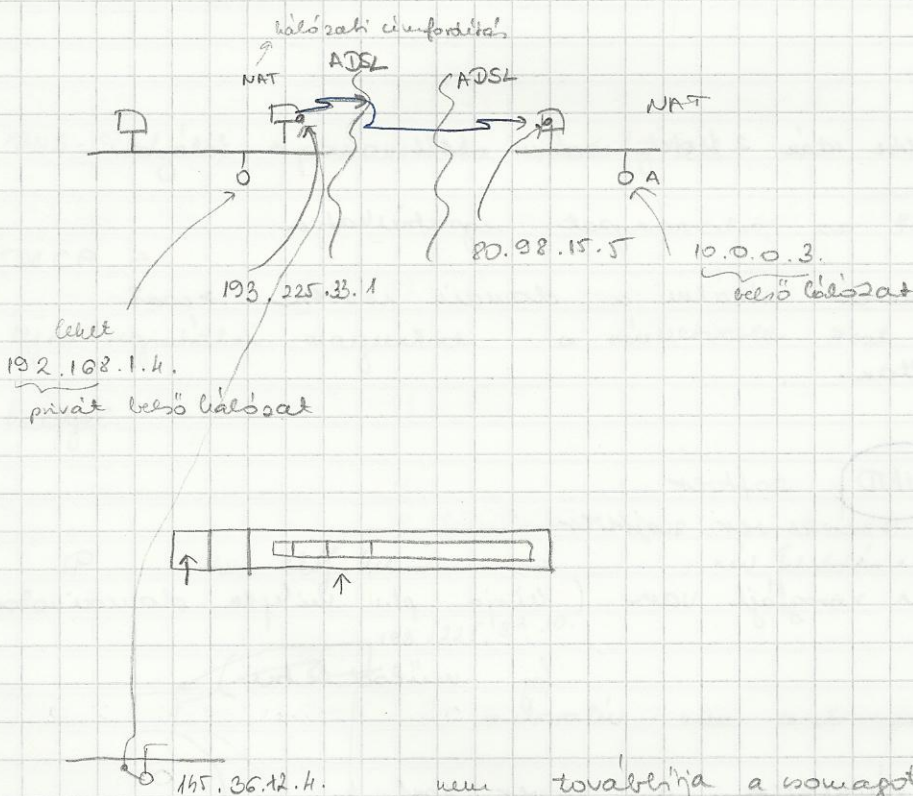 hálózati címfordítás
NAT
ADSL
ADSL
NAT
A
193.225.33.1
80.98.15.5
10.0.0.3.
belső hálózat
lehet
192.168.1.4.
privát belső hálózat
145.36.12.4.
nem továbbítja a csomagot